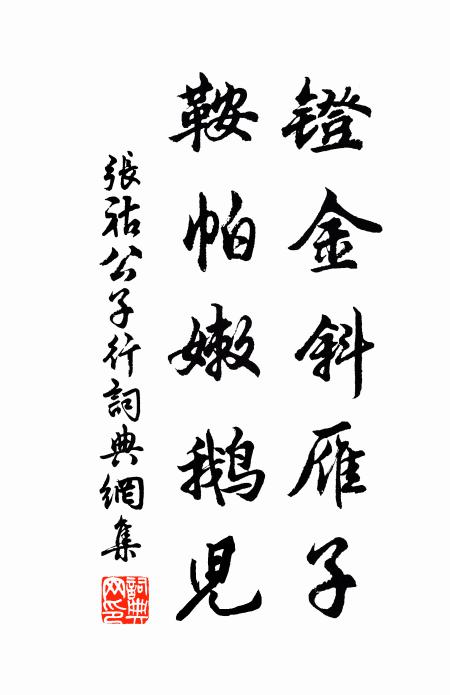 镫金斜雁子
鞍帕嫩鹅兒
張祜公子行詞典網集
詞典网印